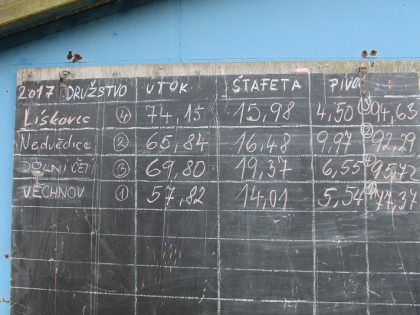 2017 DRUŽSTVO ÚTOK ŠTAFETA PIVO
Liškovec ④ 74,15 15,98 4,50 ③ 94,63
Nedvědice ② 65,84 16,48 9,97 ② 92,29
DOLNÍ ČEP ③ 69,80 19,37 6,55 ④ 95,72
VĚCHNOV ① 57,82 14,01 5,54 ① 77,37